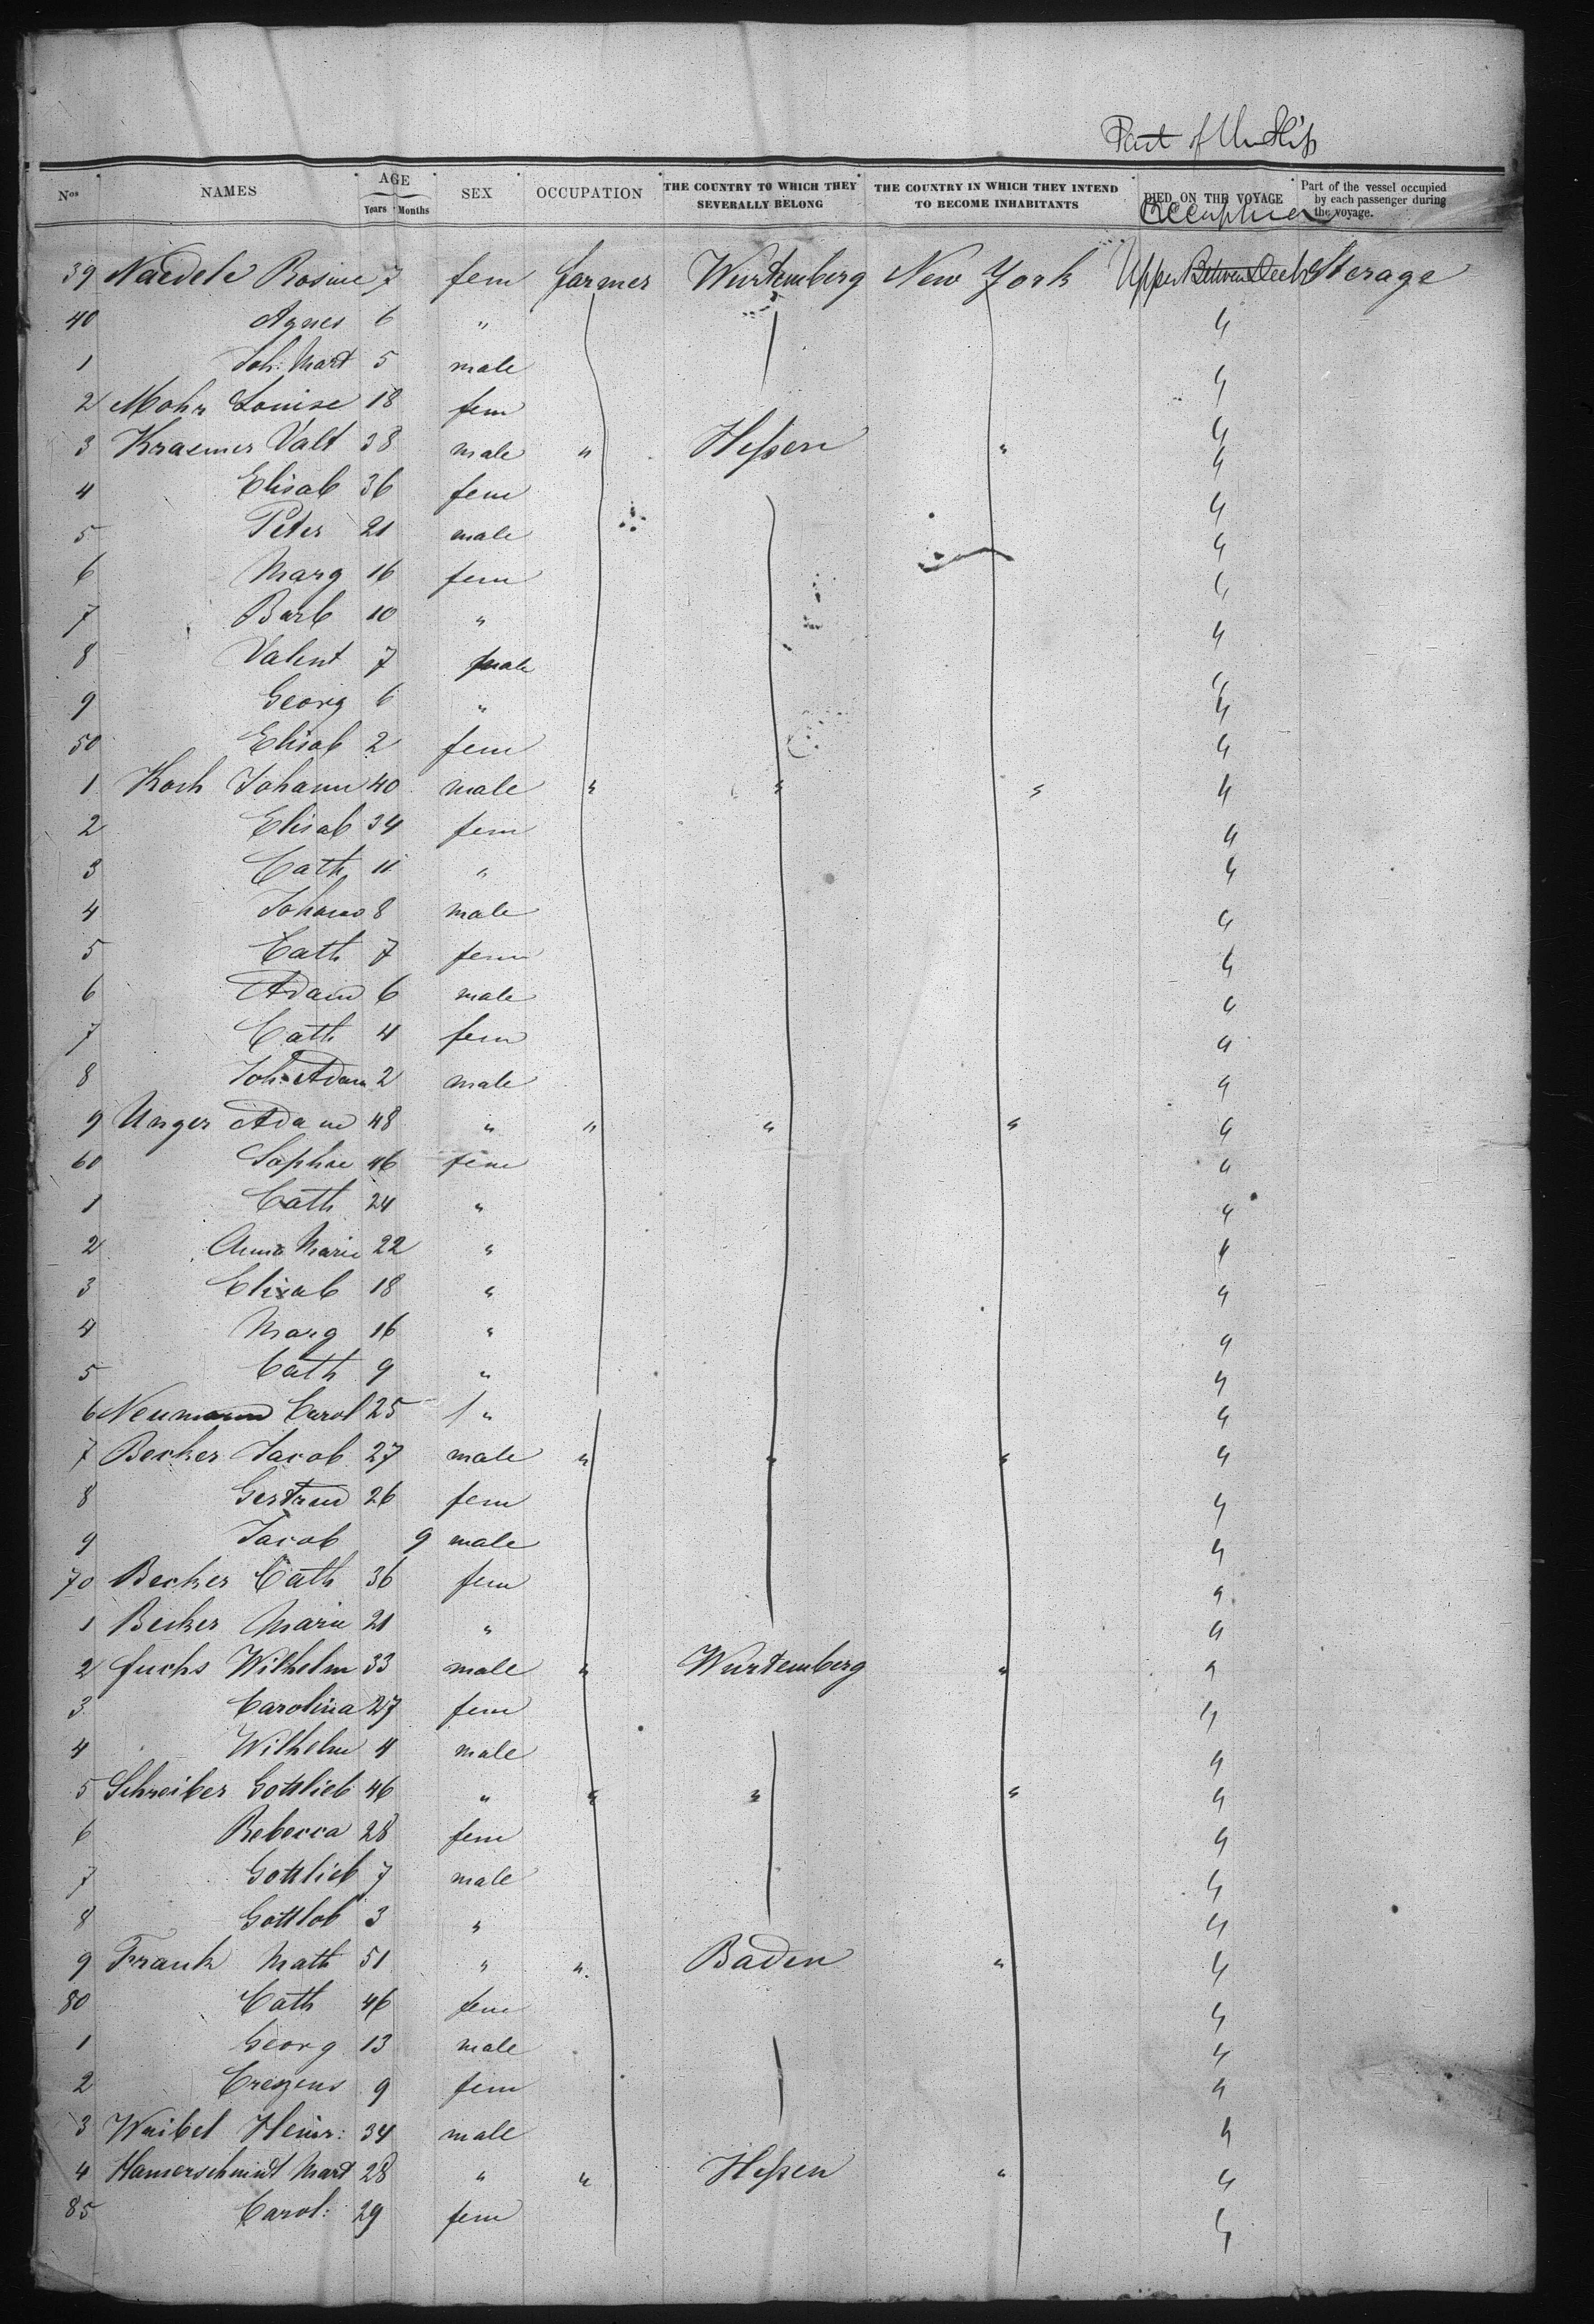 Part of the Ship
Nos NAMES AGE Years Months SEX OCCUPATION THE COUNTRY TO WHICH THEY SEVERALLY BELONG THE COUNTRY IN WHICH THEY INTEND TO BECOME INHABITANTS DIED ON THE VOYAGE Occupied Part of the vessel occupied by each passenger during the voyage.
39 Naedele Rosine 7 fem farmer Wurtemberg New York Upper Between Deck Sterage
40 Agnes 6 " "
1 Joh: Mart 5 male "
2 Mohr Louise 18 fem "
3 Kraemer Valt 38 male " Hessen " "
4 Elisab 36 fem "
5 Peter 21 male "
6 Marg 16 fem "
7 Barb 10 " "
8 Valent 7 male "
9 Georg 6 " "
50 Elisab 2 fem "
1 Koch Johann 40 male " " " "
2 Elisab 34 fem "
3 Cath 11 " "
4 Johann 8 male "
5 Cath 7 fem "
6 Adam 6 male "
7 Cath 4 fem "
8 Joh: Adam 2 male "
9 Unger Adam 48 " " " " "
60 Sophie 46 fem "
1 Cath 24 " "
2 Anna Marie 22 " "
3 Elisab 18 " "
4 Marg 16 " "
5 Cath 9 " "
6 Neumann Carol 25 " "
7 Becker Jacob 27 male " " " "
8 Gertrud 26 fem "
9 Jacob 9 male "
70 Becker Cath 36 fem "
1 Becker Marie 21 " "
2 Fuchs Wilhelm 33 male " Wurtemberg " "
3 Carolina 27 fem "
4 Wilhelm 4 male "
5 Schreiber Gottlieb 46 " " " " "
6 Rebecca 28 fem "
7 Gottlieb 7 male "
8 Gottlob 3 " "
9 Frank Math 51 " " Baden " "
80 Cath 46 fem "
1 Georg 13 male "
2 Creszens 9 fem "
3 Waibel Heinr: 34 male "
4 Hamerschmidt Mart 28 " " Hessen " "
85 Carol: 29 fem "